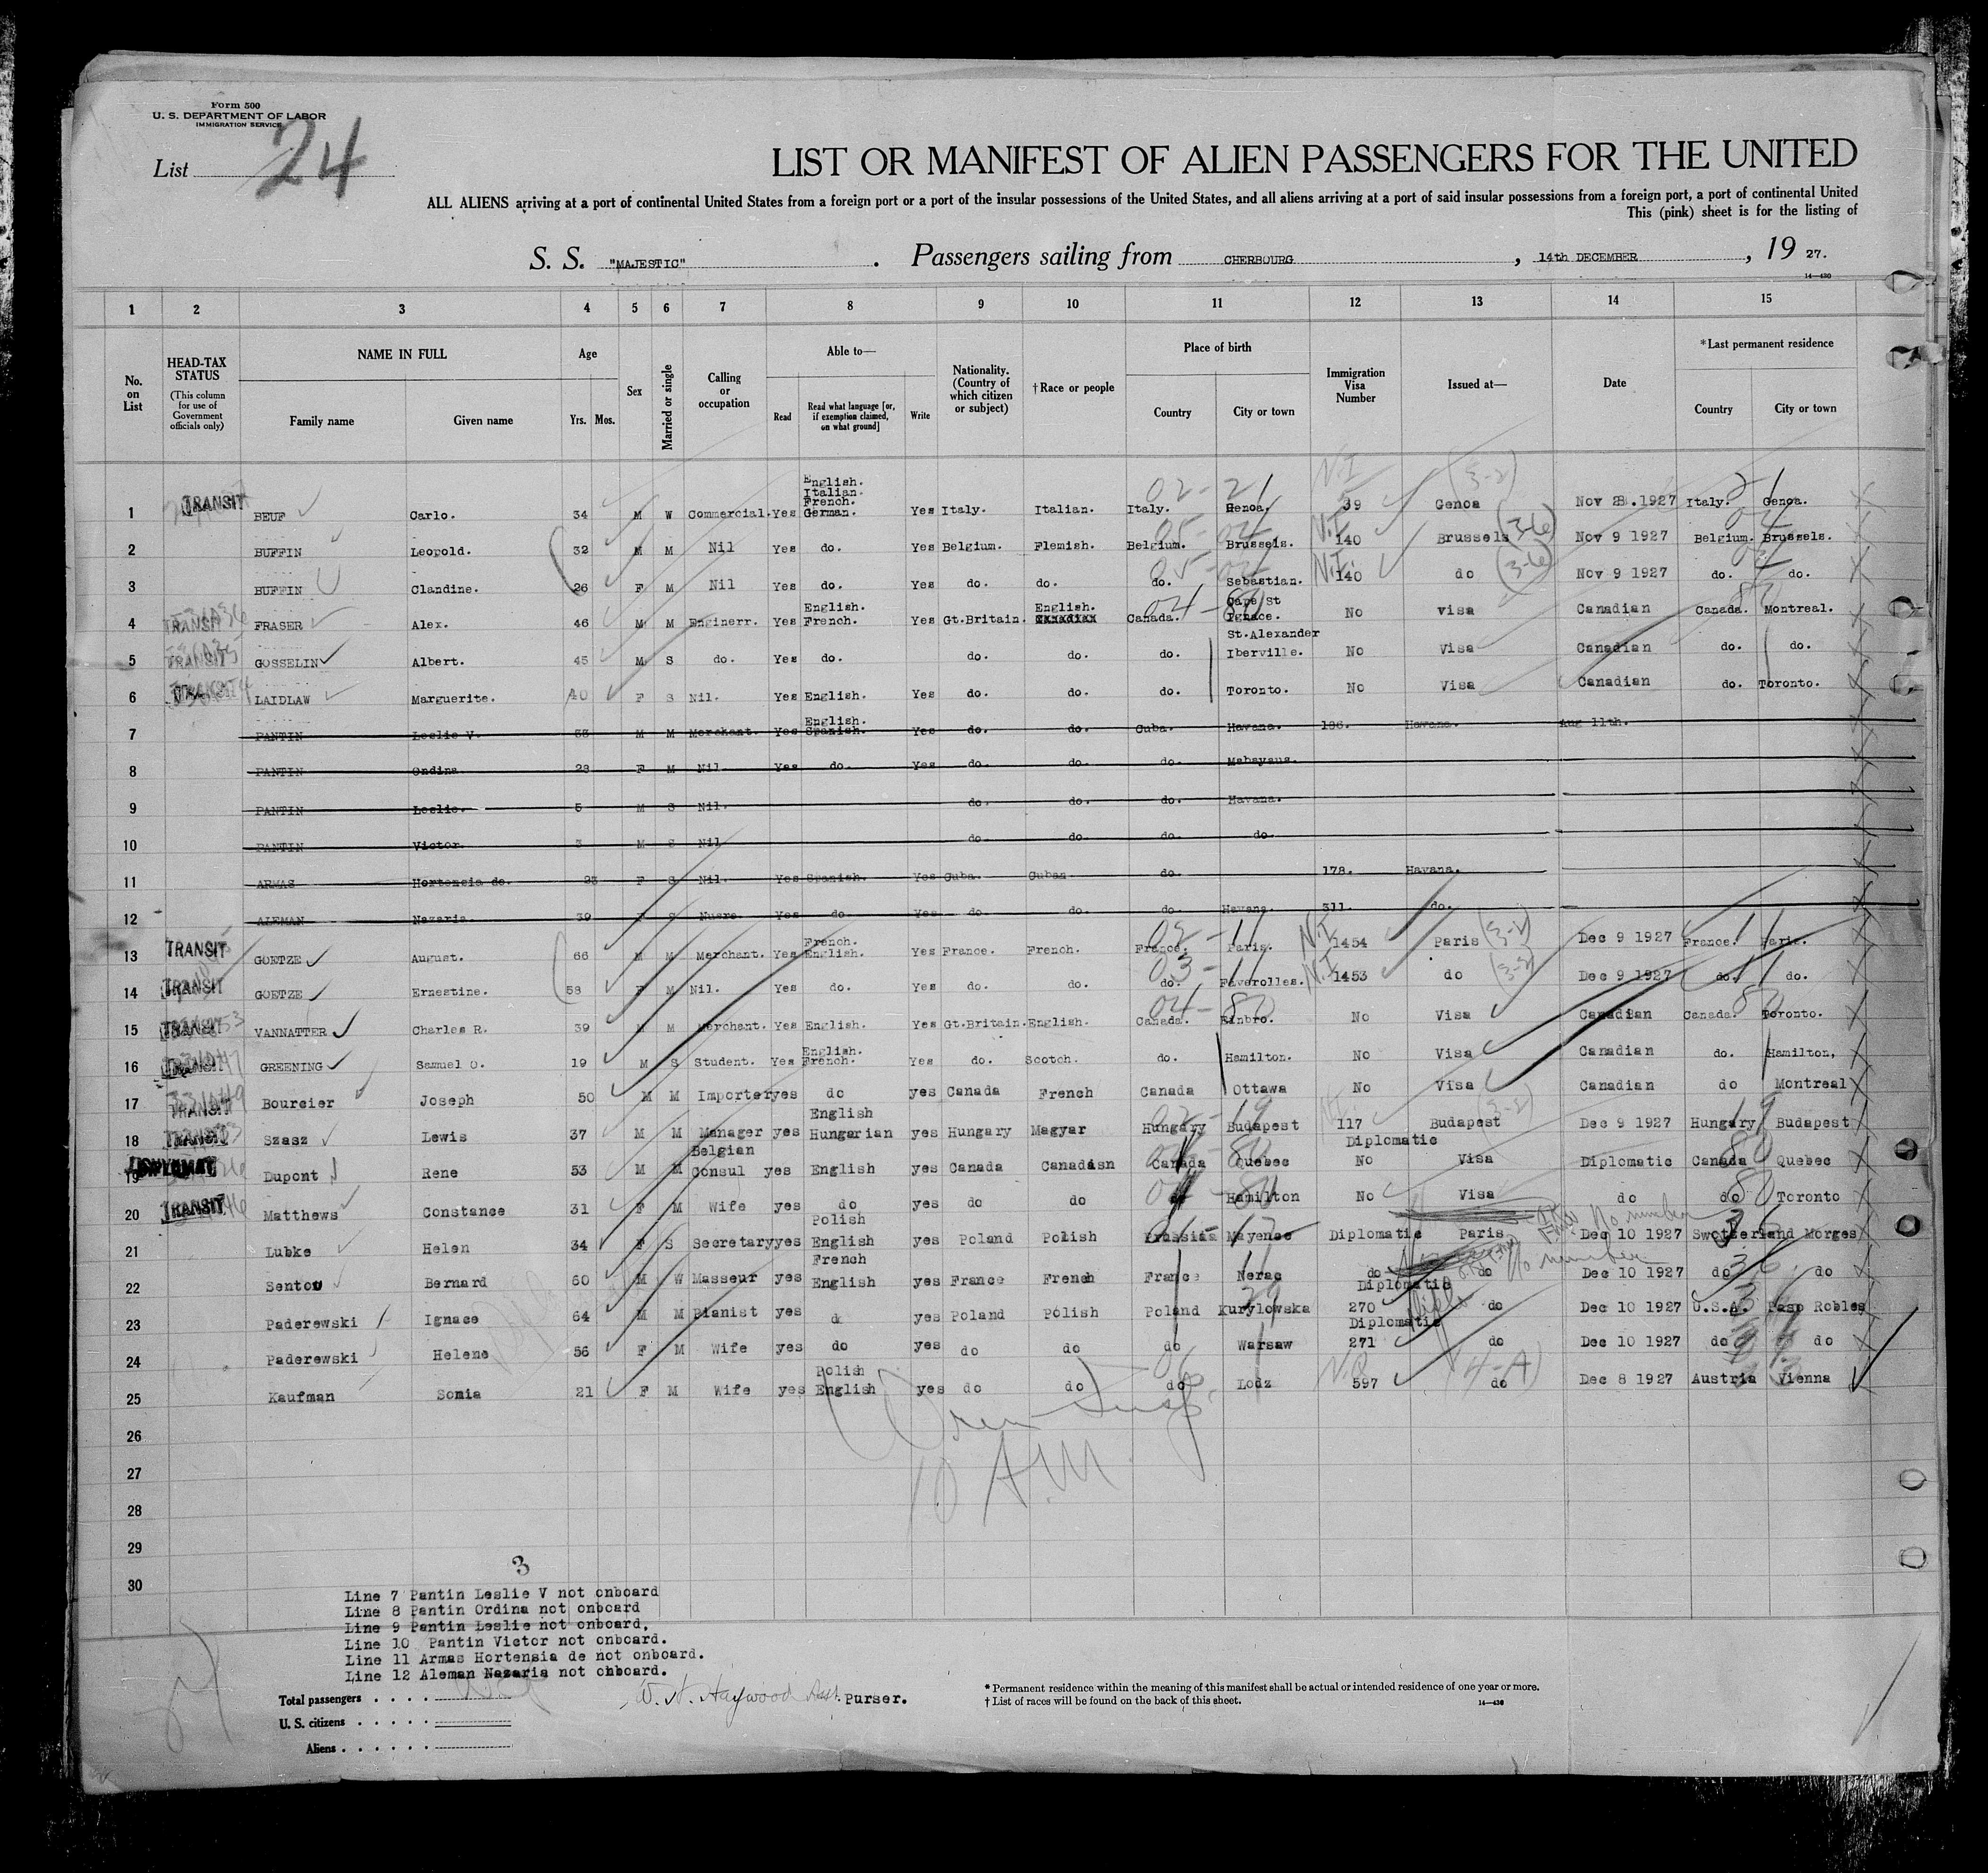 Form 500
U. S. DEPARTMENT OF LABOR
IMMIGRATION SERVICE
List 24
LIST OR MANIFEST OF ALIEN PASSENGERS FOR THE UNITED
ALL ALIENS arriving at a port of continental United States from a foreign port or a port of the insular possessions of the United States, and all aliens arriving at a port of said insular possessions from a foreign port, a port of continental United
This (pink) sheet is for the listing of
S. S. "MAJESTIC" . Passengers sailing from CHERBOURG , 14th DECEMBER , 19 27.
14—430
1 2 3 4 5 6 7 8 9 10 11 12 13 14 15
No. on List
HEAD-TAX STATUS
(This column for use of Government officials only)
NAME IN FULL
Family name Given name
Age
Yrs. Mos.
Sex
Married or single
Calling or occupation
Able to—
Read Read what language [or, if exemption claimed, on what ground] Write
Nationality. (Country of which citizen or subject)
†Race or people
Place of birth
Country City or town
Immigration Visa Number
Issued at—
Date
*Last permanent residence
Country City or town
1 TRANSIT BEUF Carlo. 34 M W Commercial. Yes English. Italian. French. German. Yes Italy. Italian. Italy. Genoa. 39 Genoa Nov 28.1927 Italy. Genoa.
2 BUFFIN Leopold. 32 M M Nil Yes do. Yes Belgium. Flemish. Belgium. Brussels. 140 Brussels (3-6) Nov 9 1927 Belgium. Brussels.
3 BUFFIN Clandine. 26 F M Nil Yes do. Yes do. do. do. Sebastian. 140 do (3-6) Nov 9 1927 do. do.
4 TRANSIT FRASER Alex. 46 M M Enginerr. Yes English. French. Yes Gt.Britain. English. Canada. Cape St Ignace. No visa Canadian Canada. Montreal.
5 TRANSIT GOSSELIN Albert. 45 M S do. Yes do. do. do. do. St.Alexander Iberville. No Visa Canadian do. do.
6 TRANSIT LAIDLAW Marguerite. 40 F S Nil. Yes English. Yes do. do. do. Toronto. No Visa Canadian do. Toronto.
7 PANTIN Leslie V. 33 M M Merchant. Yes English. Spanish. Yes do. do. Cuba. Havana. 186. Havana. Aug 11th.
8 PANTIN Ondina 28 F M Nil Yes do. Yes do. do. do.
9 PANTIN Leslie. 5 M S Nil. do. do. do. Havana.
10 PANTIN Victor 3 M S Nil do do do do
11 ARMAS Hortencia de. 23 F S Nil. Yes Spanish. Yes Cuba. Cuban do. 178. Havana.
12 ALEMAN Nazaria. 39 F S Nurse Yes do. Yes do do. do. Havana. 311. do.
13 TRANSIT GOETZE August. 66 M M Merchant. Yes French. English. Yes France. French. France. Paris. 1454 Paris (3-2) Dec 9 1927 France. Paris.
14 TRANSIT GOETZE Ernestine. 58 F M Nil. Yes do. Yes do. do. do. Faverolles. 1453 do (3-2) Dec 9 1927 do. do.
15 TRANSIT VANNATTER Charles R. 39 M M Merchant. Yes English. Yes Gt.Britain. English. Canada. Einbro. No Visa Canadian Canada. Toronto.
16 TRANSIT GREENING Samuel O. 19 M S Student. Yes English. French. Yes do. Scotch. do. Hamilton. No Visa Canadian do. Hamilton,
17 TRANSIT Bourcier Joseph 50 M M Importer yes do yes Canada French Canada Ottawa No Visa Canadian do Montreal
18 TRANSIT Szasz Lewis 37 M M Manager yes English Hungarian yes Hungary Magyar Hungary Budapest 117 Budapest (3-2) Dec 9 1927 Hungary Budapest
19 DIPLOMAT Dupont Rene 53 M M Belgian Consul yes English yes Canada Canadian Canada Quebec Diplomatic No Visa Diplomatic Canada Quebec
20 TRANSIT Matthews Constance 31 F M Wife yes do yes do do Hamilton No Visa do do Toronto
21 Lubke Helen 34 F S Secretary yes Polish English yes Poland Polish Prussia Mayence Diplomatic Paris No number Dec 10 1927 Switzerland Morges
22 Sentou Bernard 60 M W Masseur yes French English yes France French France Nerac do do No number Dec 10 1927 do do
23 Paderewski Ignace 64 M M Pianist yes do yes Poland Polish Poland Kurylowska Diplomatic 270 do Dec 10 1927 U.S.A. Paso Robles
24 Paderewski Helene 56 F M Wife yes do yes do do do Warsaw Diplomatic 271 do Dec 10 1927 do do
25 Kaufman Sonia 21 F M Wife yes Polish English yes do do do Lodz 597 do (4-A) Dec 8 1927 Austria Vienna
26
27
10 A.M.
28
29
30
3
Line 7 Pantin Leslie V not onboard
Line 8 Pantin Ordina not onboard
Line 9 Pantin Leslie not onboard,
Line 10 Pantin Victor not onboard.
Line 11 Armas Hortensia de not onboard.
Line 12 Aleman Nazaria not onboard.
Total passengers
U. S. citizens
Aliens
W. H. Haywood Asst. Purser.
* Permanent residence within the meaning of this manifest shall be actual or intended residence of one year or more.
† List of races will be found on the back of this sheet.
14—430